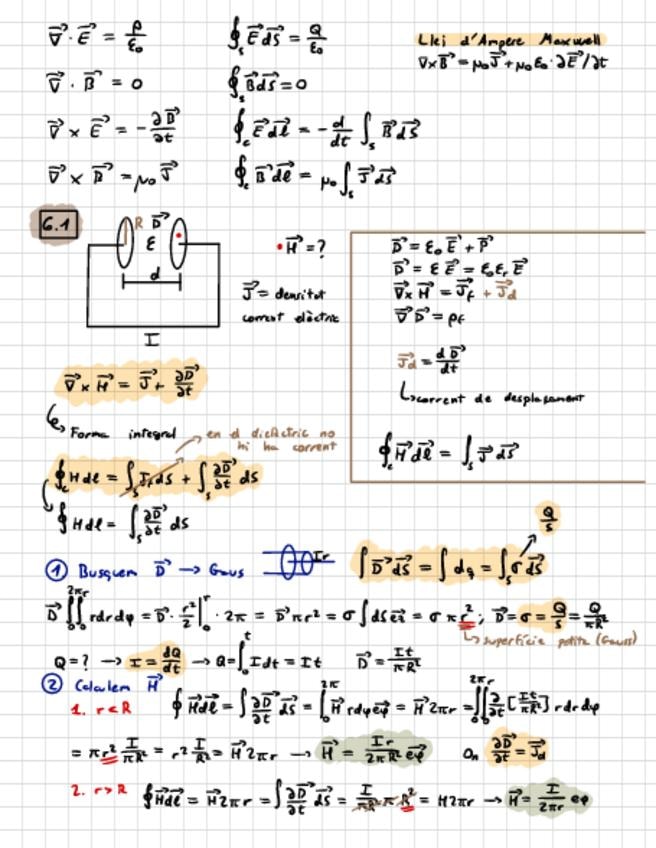 ∇⃗ · E⃗ = ρ/ε₀    ∮ₛ E⃗ dS⃗ = Q/ε₀    Llei d'Ampere Maxwell
∇×B⃗ = μ₀J⃗ + μ₀ε₀ · ∂E⃗/∂t
∇⃗ · B⃗ = 0    ∮ₛ B⃗dS⃗ = 0
∇⃗ × E⃗ = -∂B⃗/∂t    ∮c E⃗dl⃗ = -d/dt ∫ₛ B⃗dS⃗
∇⃗ × B⃗ = μ₀ J⃗    ∮c B⃗dl⃗ = μ₀ ∫ₛ J⃗dS⃗
6.1
R D⃗
ε
d
I
• H⃗ = ?
J⃗ = densitat
corrent elèctric
D⃗ = ε₀ E⃗ + P⃗
D⃗ = ε E⃗ = ε₀εᵣ E⃗
∇⃗× H⃗ = J⃗f + J⃗d
∇⃗ D⃗ = ρf
J⃗d = dD⃗/dt
↳ corrent de desplaçament
∮c H⃗dl⃗ = ∫ₛ J⃗ dS⃗
∇⃗ × H⃗ = J⃗ + ∂D⃗/∂t
↳ Forma integral
→ en el dielèctric no
hi ha corrent
∮c H dl = ∫ₛ Jf ds + ∫ₛ ∂D⃗/∂t ds
∮ H dl = ∫ₛ ∂D⃗/∂t ds
① Busquem D⃗ → Gaus    Ir    ∫ D⃗ dS⃗ = ∫ dq = ∫ₛ σ dS⃗    Q/S
D⃗ ∫₀^2π ∫₀^r rdrdφ = D⃗ · r²/2 |₀^r · 2π = D⃗ πr² = σ ∫ dS e⃗z = σ π r² ; D⃗ = σ = Q/S = Q/πR²
↳ superfície petita (Gauss)
Q = ? → I = dQ/dt → Q = ∫₀^t I dt = It    D⃗ = It/πR²
② Calculem H⃗
1. r<R    ∮ H⃗dl⃗ = ∫ ∂D⃗/∂t dS⃗ = ∫₀^2π H⃗ rdφe⃗φ = H⃗ 2πr = ∫₀^2π ∫₀^r ∂/∂t [It/πR²] rdrdφ
= πr² I/πR² = r² I/R² = H⃗ 2πr → H⃗ = Ir/2πR² e⃗φ    On ∂D⃗/∂t = J⃗d
2. r>R    ∮ H⃗dl⃗ = H⃗ 2πr = ∫ ∂D⃗/∂t dS⃗ = I/πR² π R² = H2πr → H⃗ = I/2πr eφ